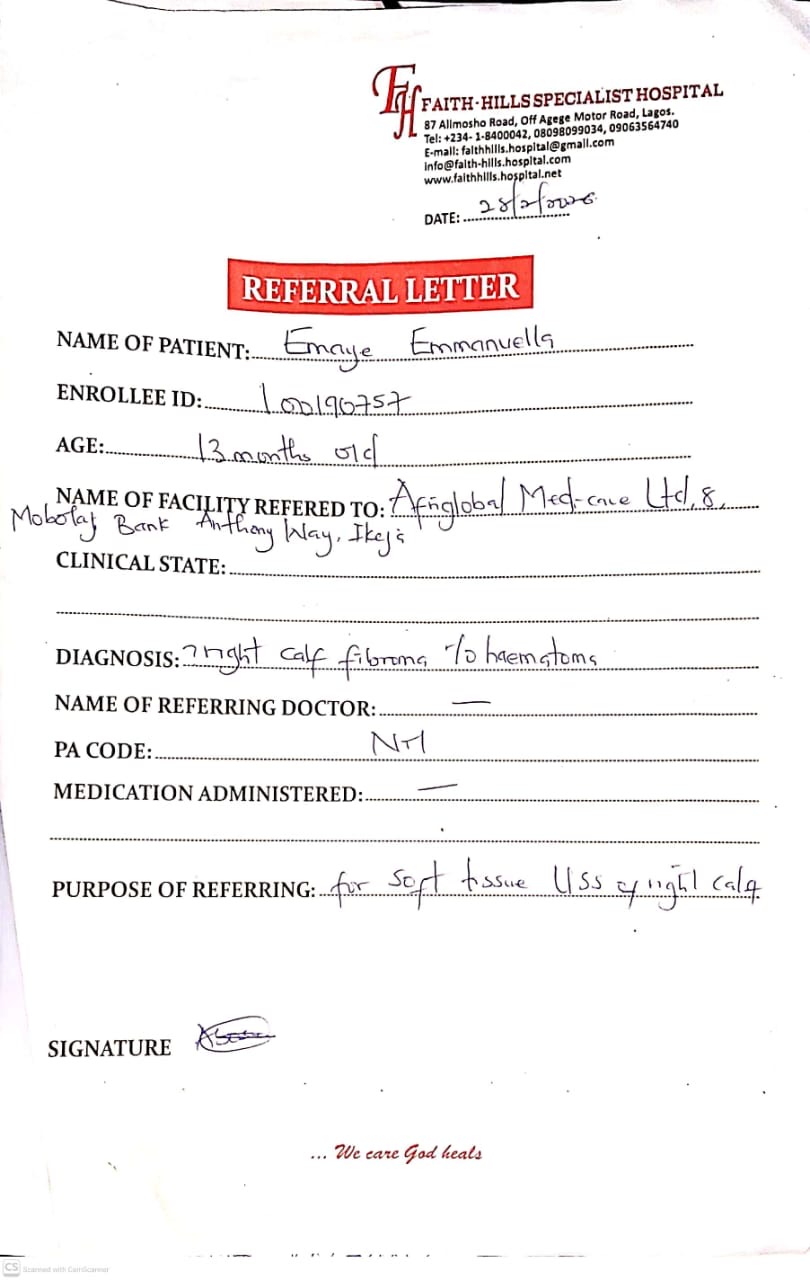 FH FAITH-HILLS SPECIALIST HOSPITAL
87 Alimosho Road, Off Agege Motor Road, Lagos.
Tel: +234- 1-8400042, 08098099034, 09063564740
E-mail: faithhills.hospital@gmail.com
info@faith-hills.hospital.com
www.faithhills.hospital.net
DATE: 28/2/2026
REFERRAL LETTER
NAME OF PATIENT: Emaye Emmanuella
ENROLLEE ID: 100190757
AGE: 13 months old
NAME OF FACILITY REFERED TO: Afriglobal Medicare Ltd, 8,
Mobolaj Bank Anthony Way, Ikeja
CLINICAL STATE:
DIAGNOSIS: ? right calf fibroma r/o haematoma
NAME OF REFERRING DOCTOR: —
PA CODE: Nil
MEDICATION ADMINISTERED: —
PURPOSE OF REFERRING: for soft tissue USS of right calf
SIGNATURE
... We care God heals
CS Scanned with CamScanner